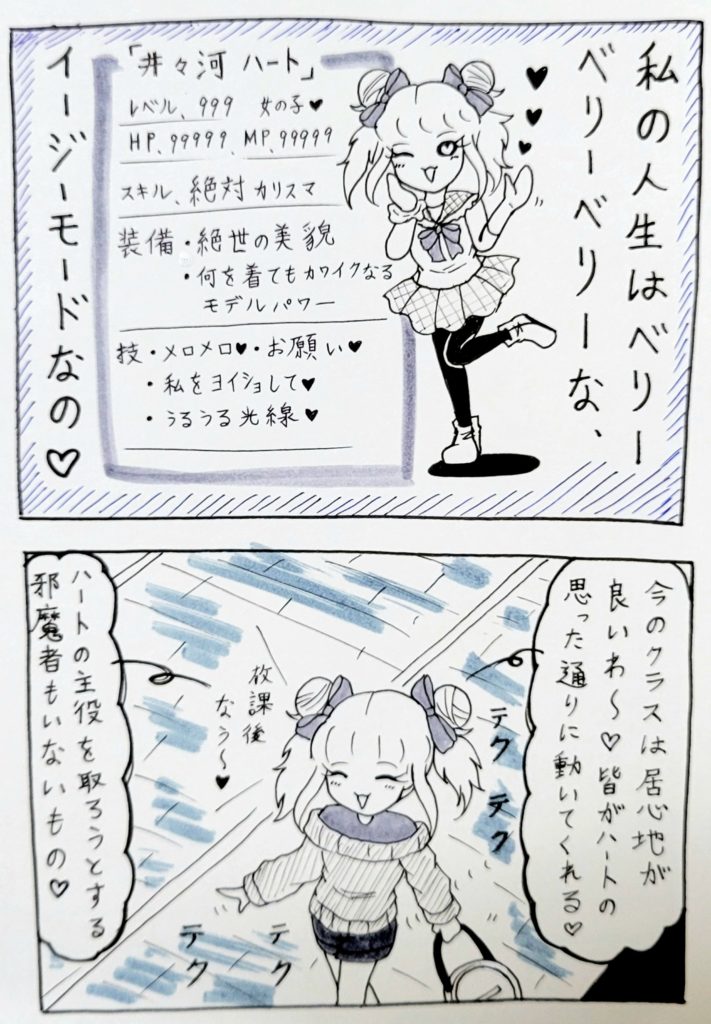 私の人生はベリー
ベリーベリーな、
「井々河 ハート」
レベル、999 女の子♥
HP、99999、MP、99999
スキル、絶対カリスマ
装備・絶世の美貌
・何を着てもカワイクなる
モデルパワー
技・メロメロ♥・お願い♥
・私をヨイショして♥
・うるうる光線♥
イージーモードなの♡
今のクラスは居心地が
良いわ〜♡皆がハートの
思った通りに動いてくれる♡
テク テク
放課後
なう〜♥
テク
テク
ハートの主役を取ろうとする
邪魔者もいないもの♡